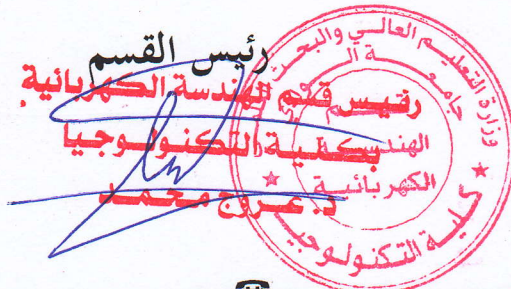 رئيس القسم
رئيس قسم الهندسة الكهربائية
بكلية التكنولوجيا
د. عروج محمد
وزارة التعليم العالي والبحث
جامعة
قسم
الهندسة
الكهربائية
كلية التكنولوجيا